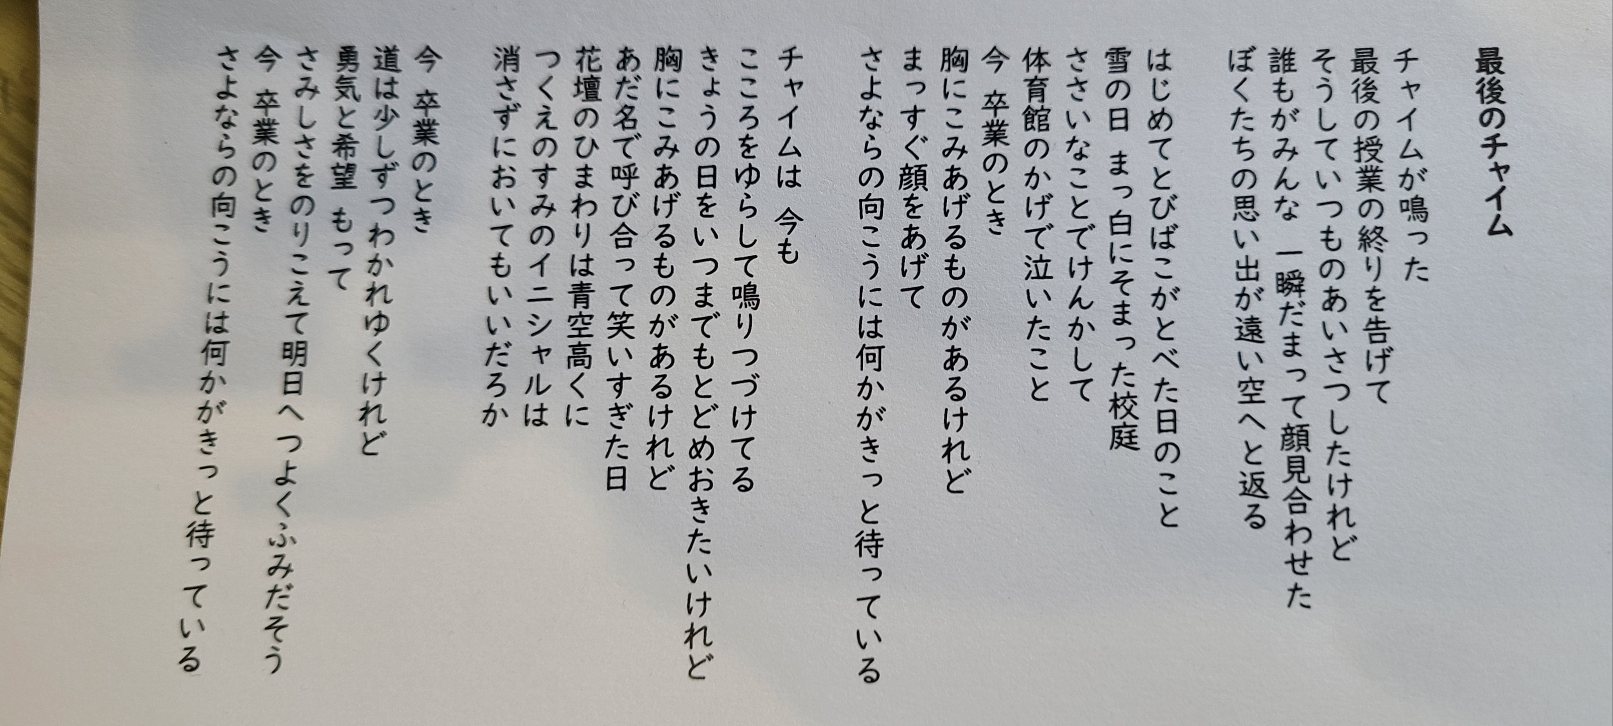 最後のチャイム
チャイムが鳴った
最後の授業の終りを告げて
そうしていつものあいさつしたけれど
誰もがみんな 一瞬だまって顔見合わせた
ぼくたちの思い出が遠い空へと返る
はじめてとびばこがとべた日のこと
雪の日 まっ白にそまった校庭
ささいなことでけんかして
体育館のかげで泣いたこと
今 卒業のとき
胸にこみあげるものがあるけれど
まっすぐ顔をあげて
さよならの向こうには何かがきっと待っている
チャイムは 今も
こころをゆらして鳴りつづけてる
きょうの日をいつまでもとどめおきたいけれど
胸にこみあげるものがあるけれど
あだ名で呼び合って笑いすぎた日
花壇のひまわりは青空高くに
つくえのすみのイニシャルは
消さずにおいてもいいだろか
今 卒業のとき
道は少しずつわかれゆくけれど
勇気と希望 もって
さみしさをのりこえて明日へつよくふみだそう
今 卒業のとき
さよならの向こうには何かがきっと待っている